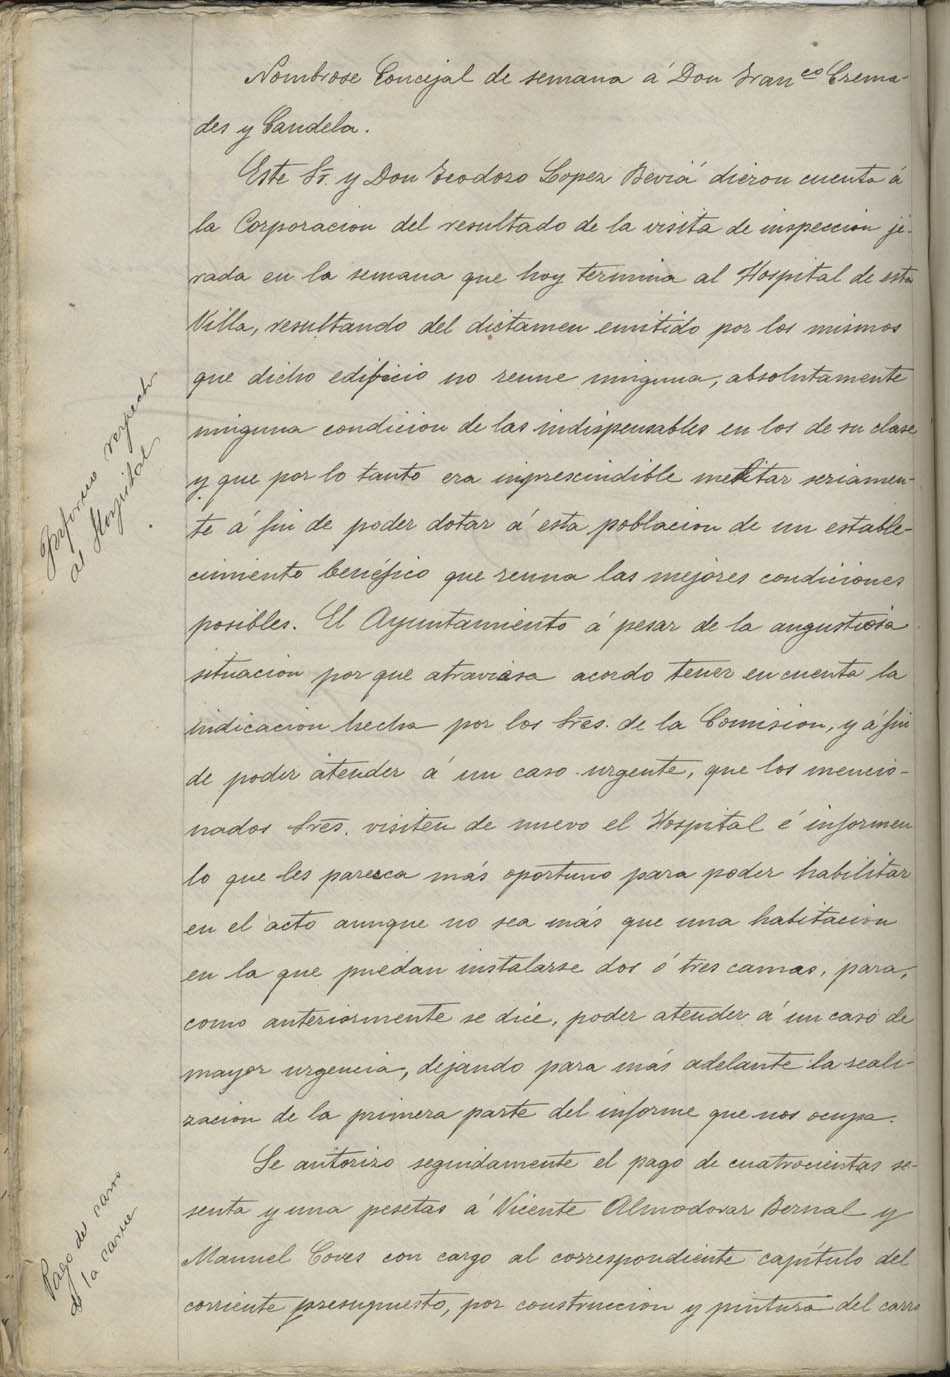 Nombrose Concejal de semana á Don Fran.co Crema-
des y Candela.
Este Sr. y Don Teodoro Lopez Beviá dieron cuenta á
la Corporacion del resultado de la visita de inspeccion ji-
rada en la semana que hoy termina al Hospital de esta
Villa, resultando del dictamen emitido por los mismos
que dicho edificio no reune ninguna, absolutamente
ninguna condicion de las indispensables en los de su clase
y que por lo tanto era imprescindible meditar seriamen-
te á fin de poder dotar á esta poblacion de un estable-
cimiento benéfico que reuna las mejores condiciones
posibles. El Ayuntamiento á pesar de la angustiosa
situacion por que atraviesa acordo tener en cuenta la
indicacion hecha por los Sres. de la Comision, y á fin
de poder atender á un caso urgente, que los mencio-
nados Sres. visiten de nuevo el Hospital é informen
lo que les paresca más oportuno para poder habilitar
en el acto aunque no sea más que una habitacion
en la que puedan instalarse dos ó tres camas, para,
como anteriormente se dice, poder atender á un caso de
mayor urgencia, dejando para más adelante la reali-
zacion de la primera parte del informe que nos ocupa.
Se autorizo seguidamente el pago de cuatrocientas se-
senta y una pesetas á Vicente Almodovar Bernal y
Manuel Coves con cargo al correspondiente capítulo del
corriente presupuesto, por construccion y pintura del carro
Informe respecto
al Hospital.
Pago del carro
de la carne